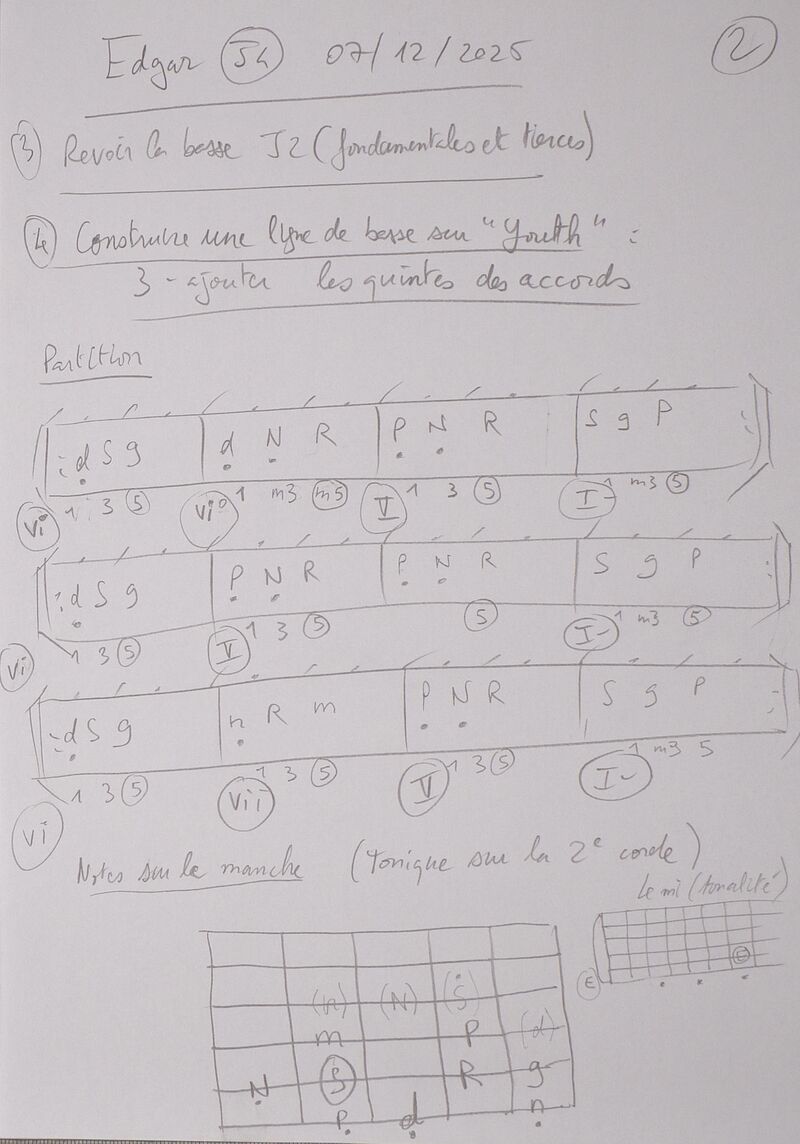 Edgar J4 07/12/2025 2
3 Revoir la basse J2 (fondamentales et tierces)
4 Construire une ligne de basse sur "Youth" :
3 - ajouter les quintes des accords
Partition
d S g d N R P N R S g P
vi 1 3 5 vi° 1 m3 m5 V 1 3 5 I- 1 m3 5
d S g P N R P N R S g P
vi 1 3 5 V 1 3 5 5 I- 1 m3 5
d S g n R m P N R S g P
vi 1 3 5 vii 1 3 5 V 1 3 5 I- 1 m3 5
Notes sur le manche (tonique sur la 2e corde)
Le mi (tonalité)
E E
(n) (N) (S)
m P (d)
N S R g
P d n